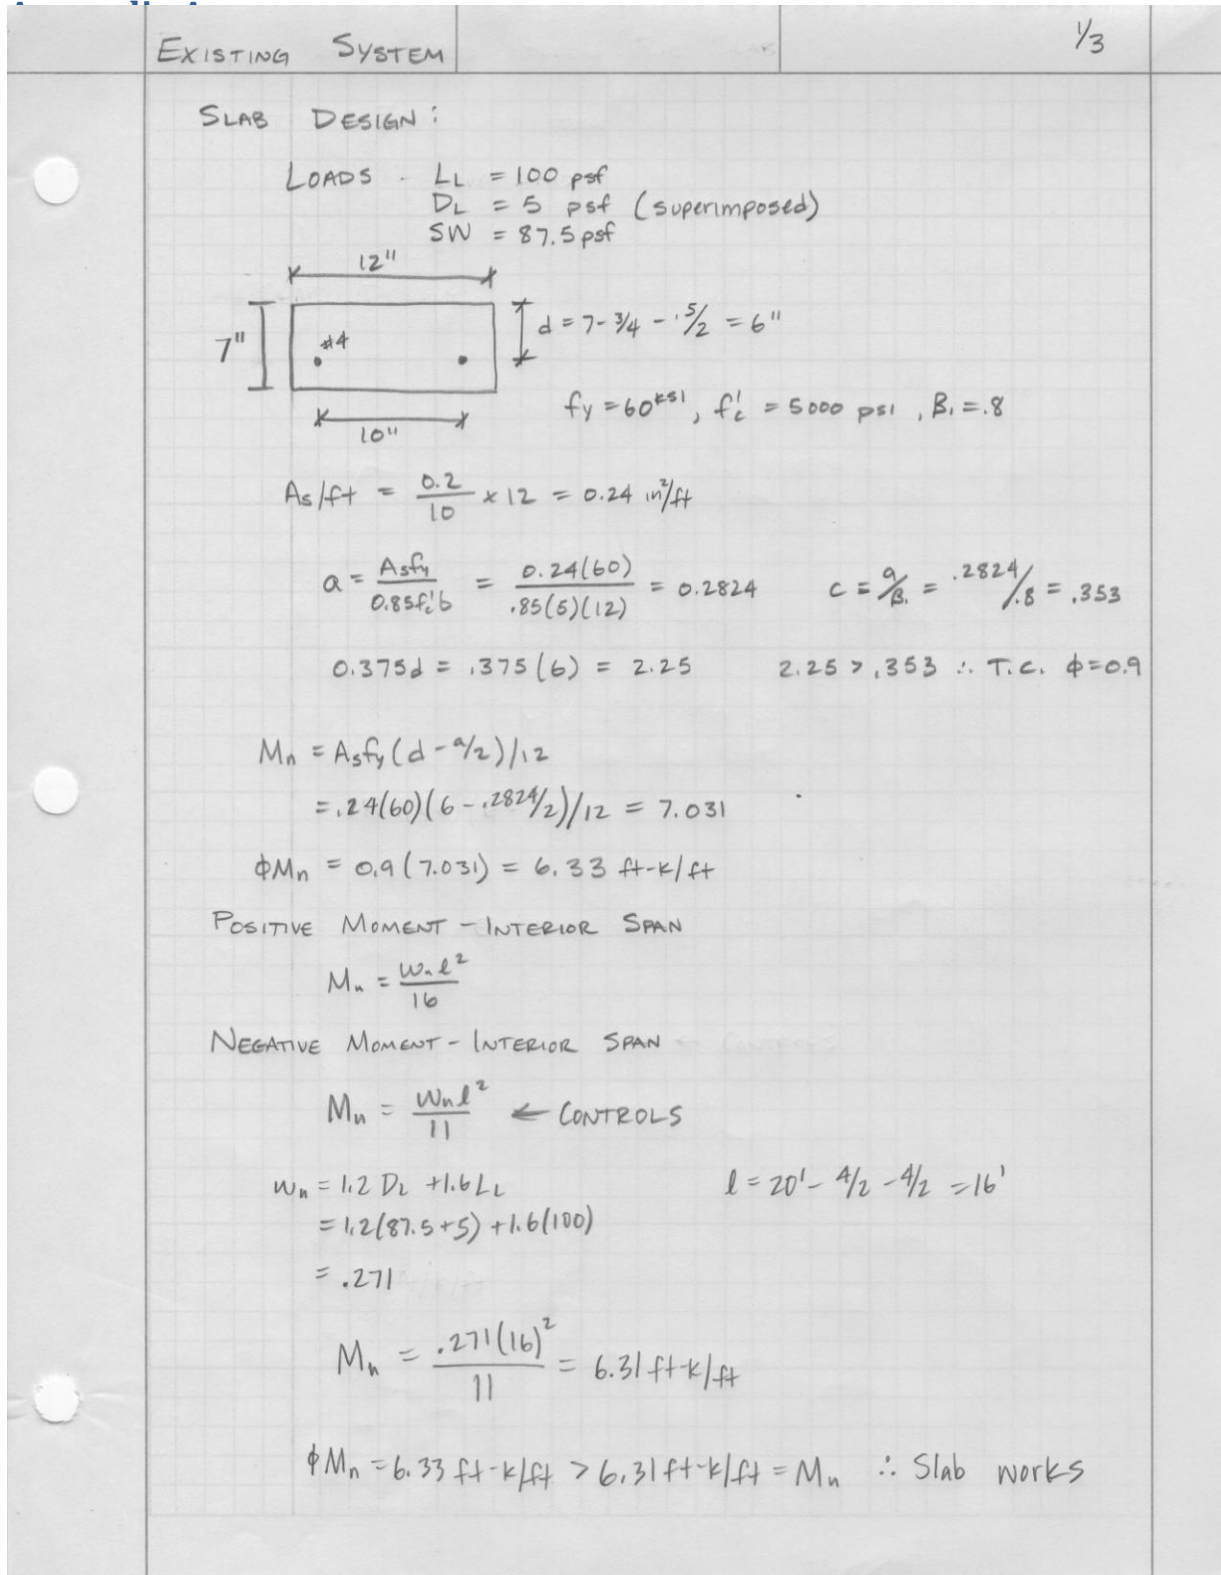 EXISTING SYSTEM
1/3
SLAB DESIGN:
LOADS - LL = 100 psf
DL = 5 psf (superimposed)
SW = 87.5 psf
12"
7"
#4
d = 7 - 3/4 - .5/2 = 6"
10"
fy = 60 ksi, f'c = 5000 psi, β1 = .8
As/ft = 0.2/10 × 12 = 0.24 in²/ft
a = Asfy/0.85f'cb = 0.24(60)/.85(5)(12) = 0.2824 c = a/β1 = .2824/.8 = .353
0.375d = .375(6) = 2.25 2.25 > .353 ∴ T.C. ϕ=0.9
Mn = Asfy(d - a/2)/12
= .24(60)(6 - .2824/2)/12 = 7.031
ϕMn = 0.9(7.031) = 6.33 ft-k/ft
POSITIVE MOMENT - INTERIOR SPAN
Mu = wul²/16
NEGATIVE MOMENT - INTERIOR SPAN
Mu = wul²/11 ← CONTROLS
wu = 1.2 DL + 1.6 LL l = 20' - 4/2 - 4/2 = 16'
= 1.2(87.5+5) + 1.6(100)
= .271
Mu = .271(16)²/11 = 6.31 ft-k/ft
ϕMn = 6.33 ft-k/ft > 6.31 ft-k/ft = Mu ∴ Slab works